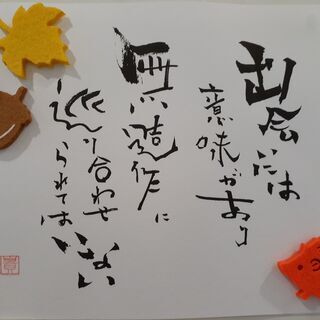 出会いには
意味があり
無造作に
巡り合わせ
られてはいない